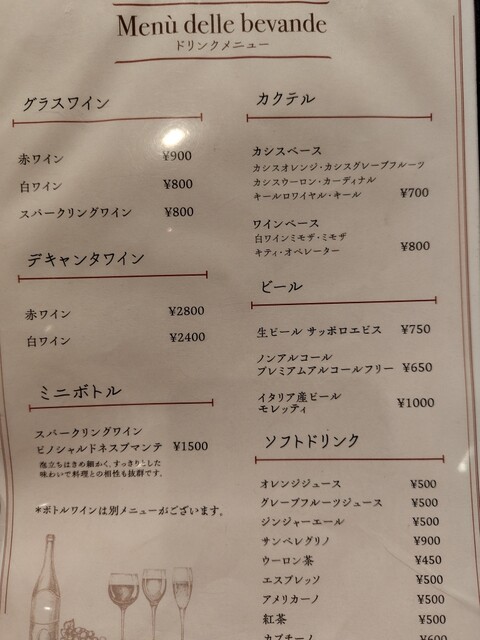 Menù delle bevande
ドリンクメニュー
グラスワイン
赤ワイン ¥900
白ワイン ¥800
スパークリングワイン ¥800
デキャンタワイン
赤ワイン ¥2800
白ワイン ¥2400
ミニボトル
スパークリングワイン
ピノシャルドネスプマンテ ¥1500
泡立ちはきめ細かく、すっきりとした
味わいで料理との相性も抜群です。
*ボトルワインは別メニューがございます。
カクテル
カシスベース
カシスオレンジ・カシスグレープフルーツ
カシスウーロン・カーディナル
キールロワイヤル・キール ¥700
ワインベース
白ワインミモザ・ミモザ
キティ・オペレーター ¥800
ビール
生ビール サッポロエビス ¥750
ノンアルコール
プレミアムアルコールフリー ¥650
イタリア産ビール
モレッティ ¥1000
ソフトドリンク
オレンジジュース ¥500
グレープフルーツジュース ¥500
ジンジャーエール ¥500
サンペレグリノ ¥900
ウーロン茶 ¥450
エスプレッソ ¥500
アメリカーノ ¥500
紅茶 ¥500
カプチーノ ¥600